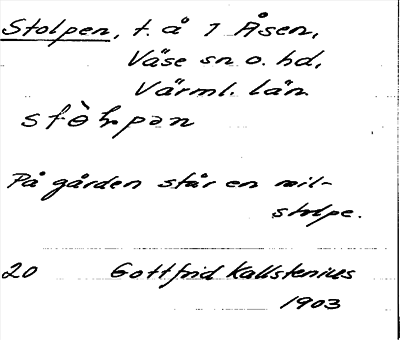 Stolpen, t. å 1 Åsen,
Väse sn o. hd,
Värml. län
På gården står en mil-
stolpe.
20 Gottfrid Kallstenius
1903